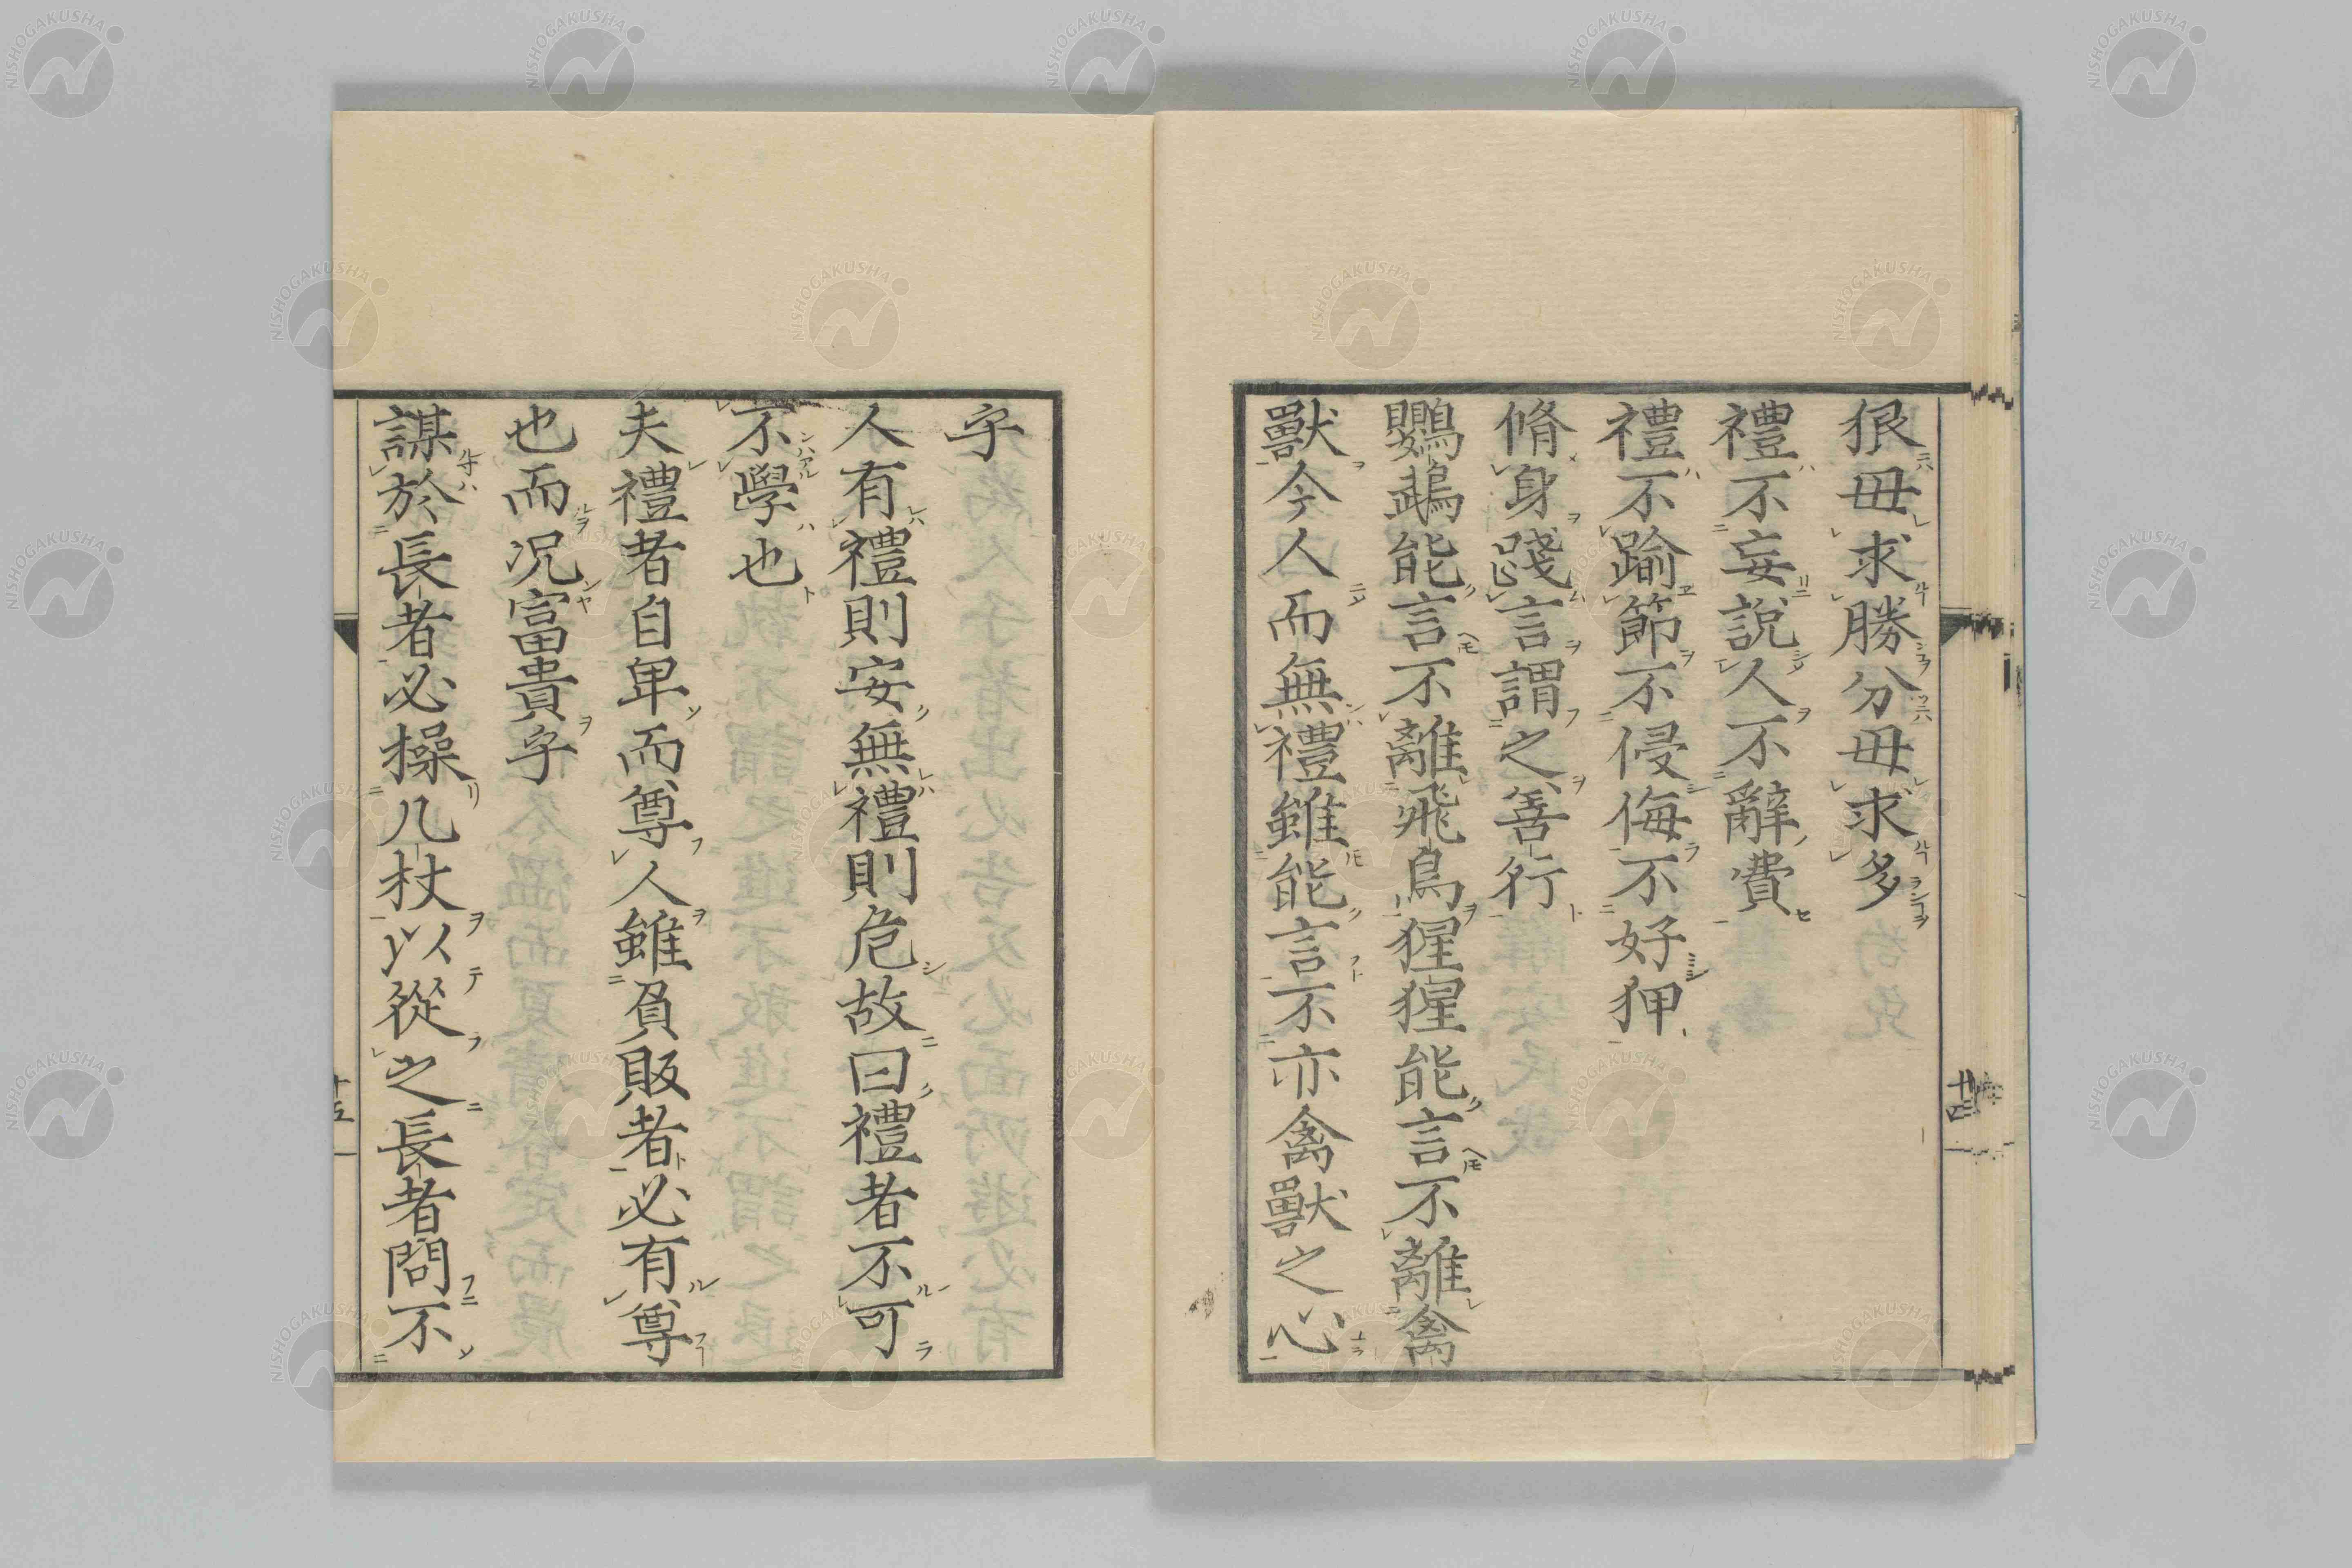 狠毋求勝分毋求多
禮不妄說人不辭費
禮不踰節不侵侮不好狎
脩身踐言謂之善行
鸚鵡能言不離飛鳥猩猩能言不離禽
獸今人而無禮雖能言不亦禽獸之心
乎
人有禮則安無禮則危故曰禮者不可
不學也
夫禮者自卑而尊人雖負販者必有尊
也而况富貴乎
謀於長者必操几杖以從之長者問不
十四
十五
NISHOGAKUSHA